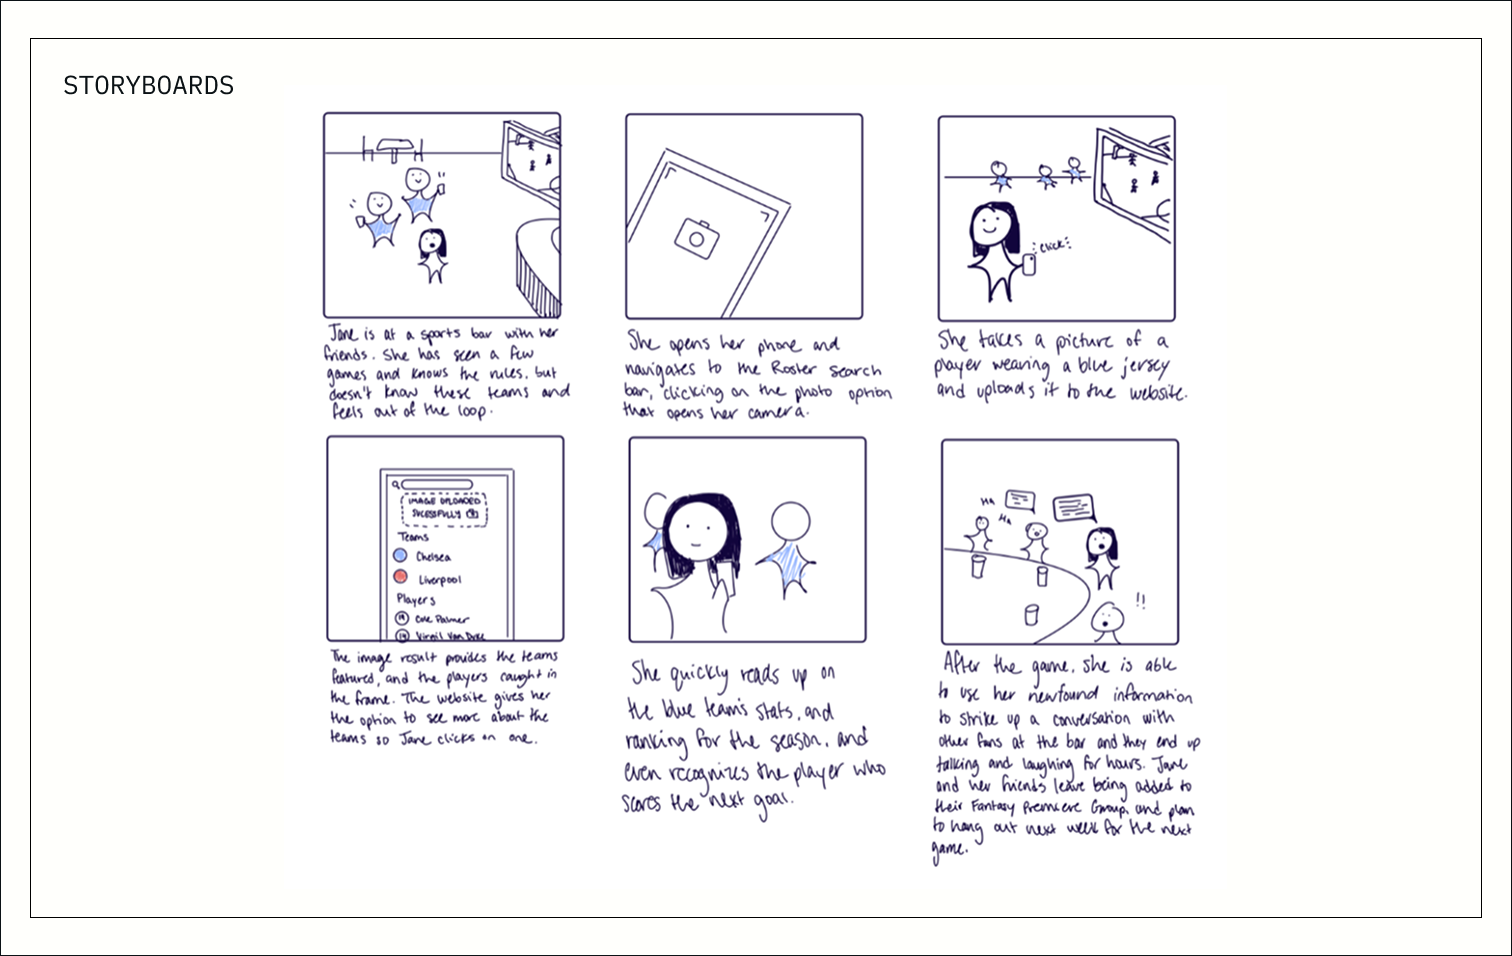 STORYBOARDS
Jane is at a sports bar with her
friends. She has seen a few
games and knows the rules, but
doesn't know these teams and
feels out of the loop.
She opens her phone and
navigates to the Roster search
bar, clicking on the photo option
that opens her camera.
click
She takes a picture of a
player wearing a blue jersey
and uploads it to the website.
IMAGE UPLOADED
SUCESSFULLY
Teams
Chelsea
Liverpool
Players
Cole Palmer
Virgil Van Dyke
The image result provides the teams
featured, and the players caught in
the frame. The website gives her
the option to see more about the
teams so Jane clicks on one.
She quickly reads up on
the blue team's stats, and
ranking for the season, and
even recognizes the player who
scores the next goal.
HA
HA
!!
After the game, she is able
to use her newfound information
to strike up a conversation with
other fans at the bar and they end up
talking and laughing for hours. Jane
and her friends leave being added to
their Fantasy Premiere Group, and plan
to hang out next week for the next
game.